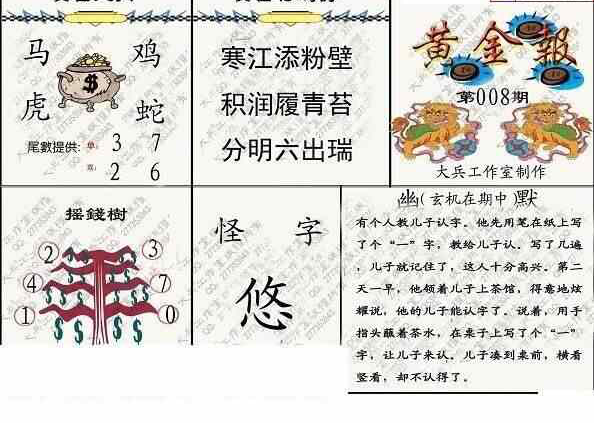 马 鸡
虎 蛇
$
尾數提供: 单: 3 7
双: 2 6
寒江添粉壁
积润履青苔
分明六出瑞
黄金報
第008期
大兵工作室制作
摇錢樹
2 3
4 7
1 0
怪 字
悠
幽(玄机在期中)默
有个人教儿子认字。他先用笔在纸上写
了个“一”字，教给儿子认。写了几遍
，儿子就记住了，这人十分高兴。第二
天一早，他领着儿子上茶馆，得意地炫
耀说，他的儿子能认字了。说着，用手
指头蘸着茶水，在桌子上写了个“一”
字，让儿子来认。儿子凑到桌前，横看
竖看，却不认得了。